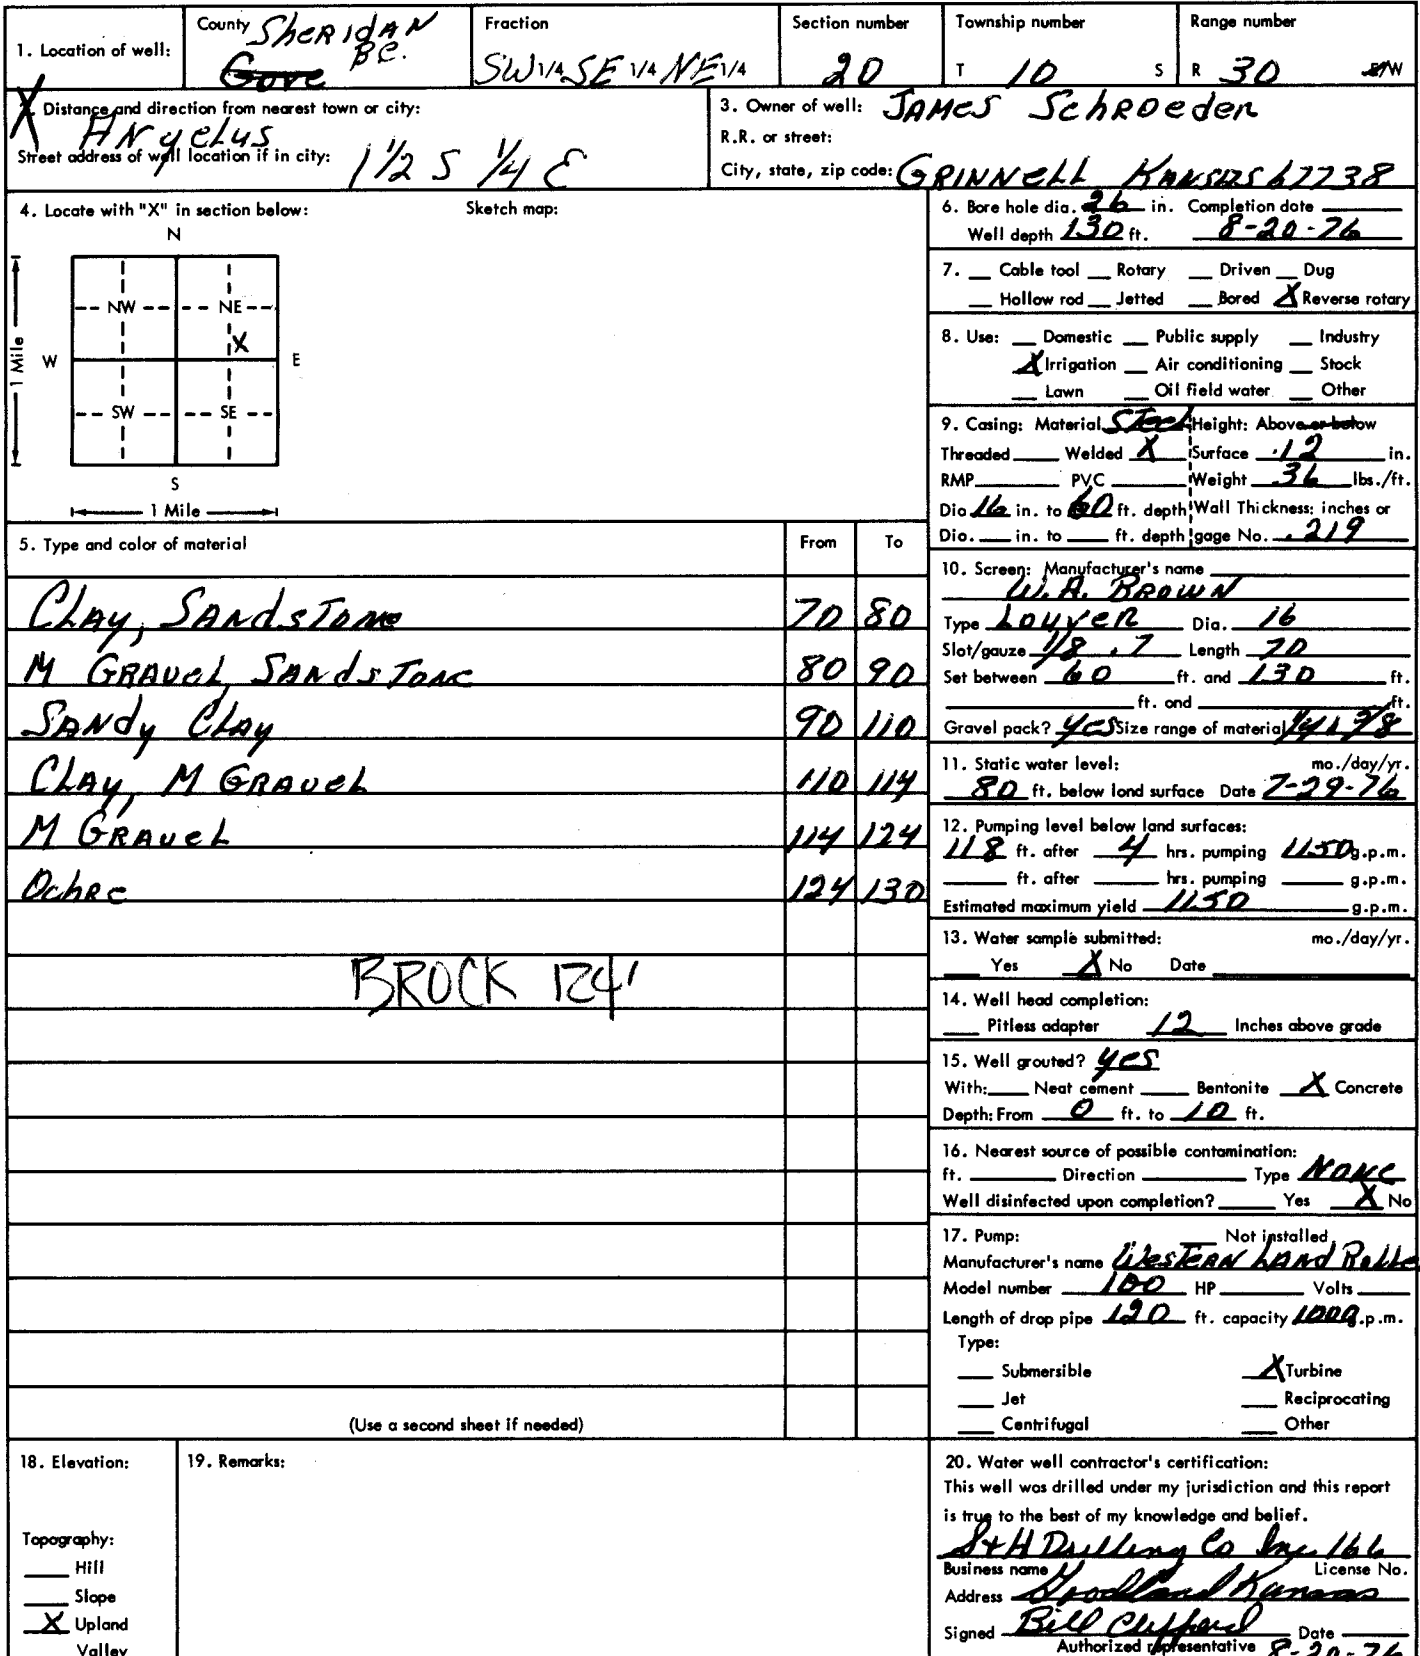 1. Location of well: County Sheridan B.C. Gove Fraction SW 1/4 SE 1/4 NE 1/4 Section number 20 Township number T 10 S Range number R 30 E/W
Distance and direction from nearest town or city: X Angelus
Street address of well location if in city: 1 1/2 S 1/4 E
3. Owner of well: James Schroeder
R.R. or street:
City, state, zip code: Grinnell Kansas 67738
4. Locate with "X" in section below: Sketch map:
N
NW NE
X
W E
SW SE
S
1 Mile
1 Mile
5. Type and color of material From To
Clay, Sandstone 70 80
M Gravel, Sandstone 80 90
Sandy Clay 90 110
Clay, M Gravel 110 114
M Gravel 114 124
Ochre 124 130
BROCK 124'
(Use a second sheet if needed)
6. Bore hole dia. 26 in. Completion date
Well depth 130 ft. 8-20-76
7. Cable tool Rotary Driven Dug
Hollow rod Jetted Bored X Reverse rotary
8. Use: Domestic Public supply Industry
X Irrigation Air conditioning Stock
Lawn Oil field water Other
9. Casing: Material Steel Height: Above or below
Threaded Welded X Surface 12 in.
RMP PVC Weight 36 lbs./ft.
Dia 16 in. to 60 ft. depth Wall Thickness: inches or
Dia. in. to ft. depth gage No. .219
10. Screen: Manufacturer's name
W.A. Brown
Type Louver Dia. 16
Slot/gauze 1/8 .7 Length 70
Set between 60 ft. and 130 ft.
ft. and ft.
Gravel pack? yes Size range of material 3/8
11. Static water level: mo./day/yr.
80 ft. below land surface Date 7-29-76
12. Pumping level below land surfaces:
118 ft. after 4 hrs. pumping 1150 g.p.m.
ft. after hrs. pumping g.p.m.
Estimated maximum yield 1150 g.p.m.
13. Water sample submitted: mo./day/yr.
Yes X No Date
14. Well head completion:
Pitless adapter 12 Inches above grade
15. Well grouted? yes
With: Neat cement Bentonite X Concrete
Depth: From 0 ft. to 10 ft.
16. Nearest source of possible contamination:
ft. Direction Type None
Well disinfected upon completion? Yes X No
17. Pump: Not installed
Manufacturer's name Western Land Rolle
Model number 100 HP Volts
Length of drop pipe 120 ft. capacity 1000 g.p.m.
Type:
Submersible X Turbine
Jet Reciprocating
Centrifugal Other
18. Elevation:
Topography:
Hill
Slope
X Upland
Valley
19. Remarks:
20. Water well contractor's certification:
This well was drilled under my jurisdiction and this report
is true to the best of my knowledge and belief.
S+H Drilling Co Inc. 166
Business name License No.
Address Goodland Kansas
Signed Bill Clifford Date
Authorized representative 8-20-76